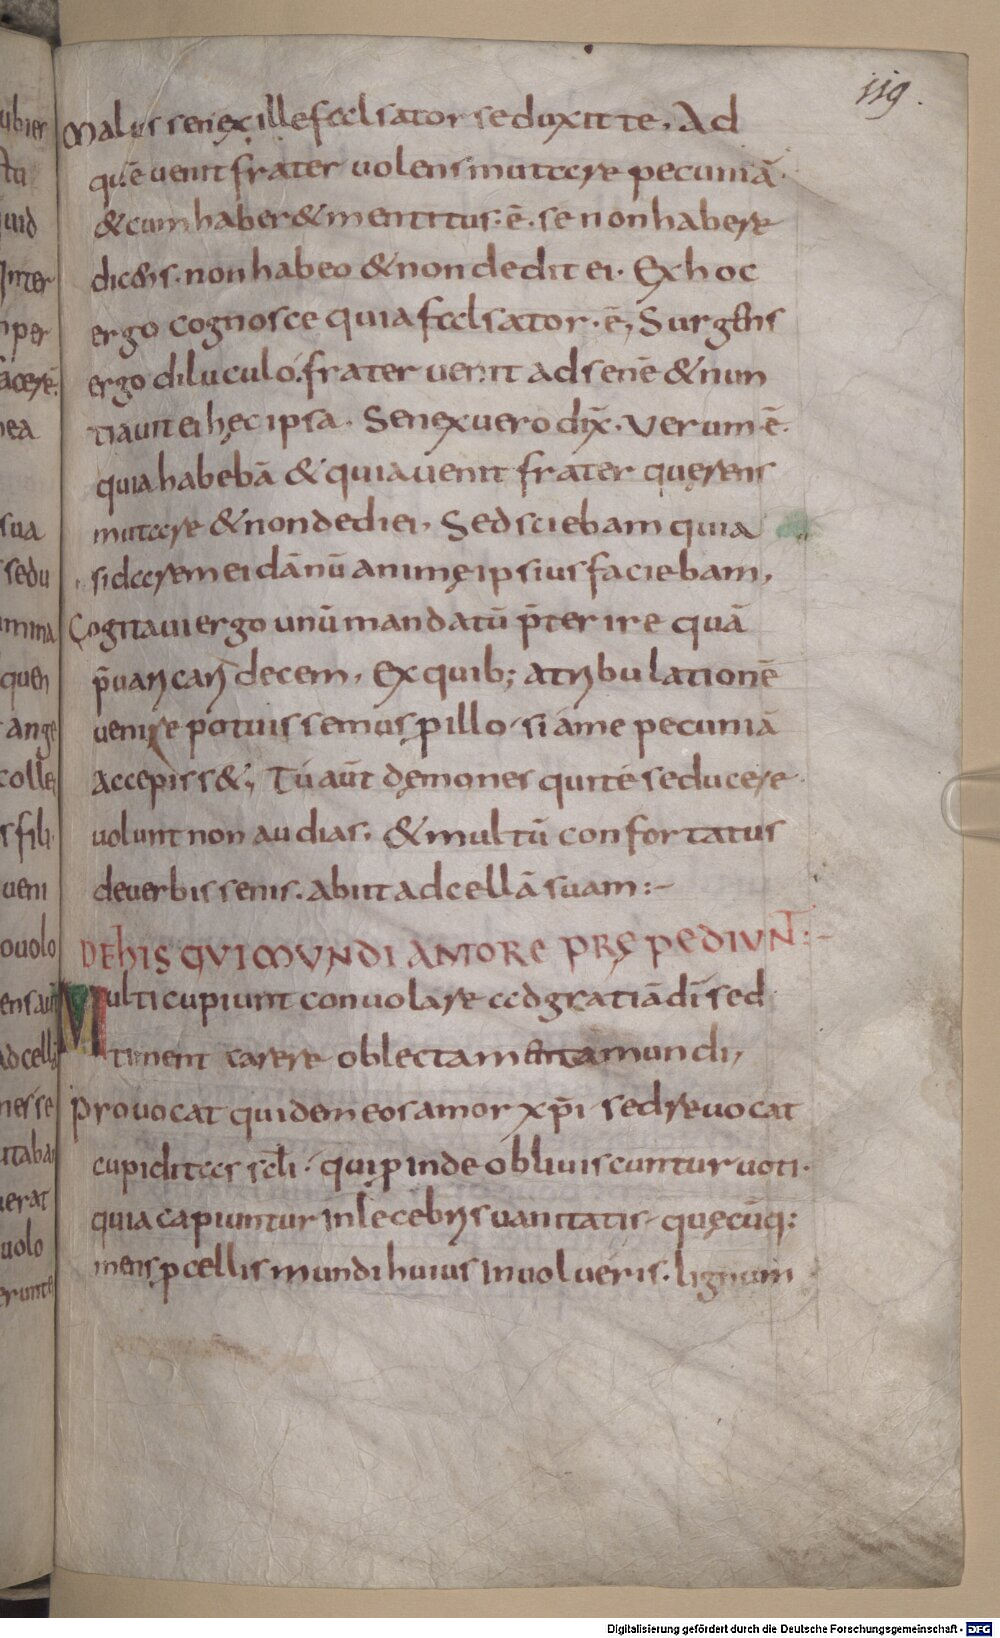 119.
Malus senex ille falsator seduxit te, Ad
quē venit frater uolens mutare pecuniā.
& cum haber& mentitus·ē· se non habere
dicens· non habeo & non dedit ei· Ex hoc
ergo cognosce quia falsator·ē, Surgens
ergo diluculo· frater uenit ad senē & nun
tiauit ei hęc ipsa. Senex uero dix̄. Verum·ē·
quia habebā & quia uenit frater quęrens
mutare & non dedi ei, Sed sciebam quia
si darem ei dānū animę ipsius faciebam,
Cogitaui ergo unū mandatū p̄terire quā
p̄uaricari decem, Ex quib; a tribulationē
uenire potuissemus ꝑ illo· si a me pecuniā
accepiss&; Tu aūt dęmones qui te seducere
uolunt non audias, & multū confortatus
de uerbis senis. abiit ad cellā suam:-
DE his QVI MVNDI AMORE PRĘPEDIVNT̄:-
Multi cupiunt conuolare ad gratiā dī sed
timent carere oblectamenta mundi,
prouocat quidem eos amor xp̄i sed reuocat
cupiditas sc̄li· qui ꝑinde obliuiscuntur uoti·
quia capiuntur inlecebris uanitatis· quęcūq:
mens ꝑcellis mundi huius inuolueris· lignum
Digitalisierung gefördert durch die Deutsche Forschungsgemeinschaft - DFG